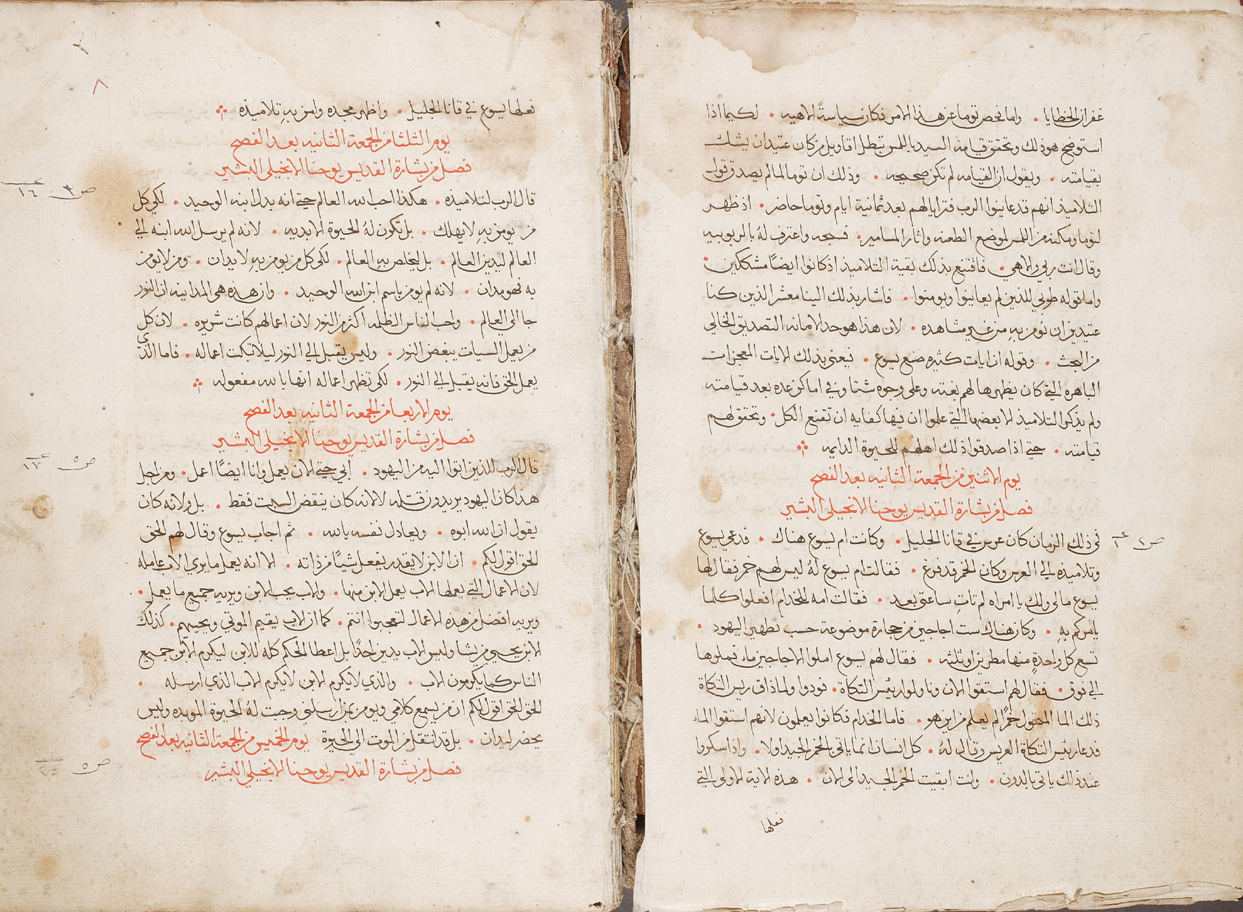 غفران الخطايا . واما فحص توما عن هذا الامر فكان سياسةً الاهيه . لكيما اذا
استوضح هو ذلك وتحقق قيامة السيد باللمس تبطل اقاويل من كان عتيدان يشك
بقيامته . ويقول ان القيامه لم تكن صحيحه . وذلك ان توما لما لم يصدق قول
التلاميذ انهم قد عاينوا الرب فترايا لهم بعد ثمانية ايام وتوما حاضر . اذ ظهر
لتوما ومكنه من اللمس لموضع الطعنه واثار المسامير . فبحه واعترف لهُ بالربوبيه
وقال انت ربي والاهي . فاقتنع بذلك بقية التلاميذ اذ كانوا ايضًا مشككين .
واما قوله طوبي للذين لم يعاينوا ويومنوا . فاشار بذلك الينا معشر الذين كنا
عتيدين ان نومن به من غير مشاهده . لان هذا هو حد الامانه التصديق الخالي
من البحث . وقوله ان ايات كثيره صنع يسوع . فيعني بذلك الايات المعجزات
الباهره التي كان يظهرها لهم بغته وعلى وجوه شتا وفي اماكن عده بعد قيامته
ولم يذكر التلاميذ الا بعضها التي علموا ان فيها كفايه ان تقنع الكل . وتحقق لهم
قيامته . حتي اذا صدقوا ذلك اهلهم للحيوة الدايمه
يوم الاثنين من الجمعة الثانيه بعد الفصح
فصل من بشارة القديس يوحنا الانجيلي البشير
في ذلك الزمان كان عرس في قانا الجليل . وكانت ام يسوع هناك . فدعي يسوع
وتلاميذه الى العرس وكان الخمر قد فرغ . فقالت ام يسوع لهُ ليس لهم خمر فقال لها
يسوع مالي ولك يا امراه لم تات ساعتي بعد . فقالت امه للخدام افعلوا كلما
يامركم به . وكان هناك ست اجاجين من حجارة موضوعة حسب تطهير اليهود .
تسع كل واحدةٍ منها مطرين او ثلثه . فقال لهم يسوع املوا الاجاجين ماء فملوها
الى فوق . فقال لهم استقوا الان وناولوا ريس التكاة . فودوا ولما ذاق ريس التكاة
ذلك الما المتحول خمرًا لم يعلم من اين هو . فاما الخدام فكانوا يعلمون لانهم استقوا الما
فدعا ريس التكاة العريس وقال له . كل انسان انما ياتي بالخمر الجيد اولا . واذا سكروا
عند ذلك ياتي بالدون . وانت ابقيت الخمر الجيد الى الان . هذه الاية الاولى التي
فعلها
ص٢
فعلها يسوع في قانا الجليل . واظهر مجده وامن بهِ تلاميذه
يوم الثلثا من الجمعة الثانيه بعد الفصح
فصل من بشارة القديس يوحنا الانجيلي البشير
قال الرب لتلاميذه . هكذا احب الله العالم حتي انه بذل ابنه الوحيد . لكي كل
من يومن به لا يهلك . بل تكون لهُ الحيوة الابديه . لانه لم يرسل الله ابنه الي
العالم ليدين العالم . بل ليخلص به العالم . لكي كل من يومن به لا يدان . ومن لا يومن
به فهو مدان . لانه لم يومن باسم ابن الله الوحيد . وان هذه هي المداينه ان النور
جا الى العالم . واحب الناس الظلمه اكثر من النور لان اعمالهم كانت شريره . لان كل
من يعمل السيات يبغض النور . وليس يقبل الي النور ليلا تبكت اعماله . فاما الذي
يعمل الحق فانه يقبل الي النور . لكي تظهر اعماله انها بالله مفعوله
يوم الاربعا من الجمعة الثانيه بعد الفصح
فصل من بشارة القديس يوحنا الانجيلي البشير
قال الرب للذين اتوا اليه من اليهود . ابي حتي الان يعمل وانا ايضًا اعمل . ومن اجل
هذا كان اليهود يريدون قتله لا لانه كان ينقض السبت فقط . بل ولانه كان
يقول ان الله ابوه . ويعادل نفسه بالله . ثم اجاب يسوع وقال لهم الحق
الحق اقول لكم . ان الابن لا يقدر يفعل شيًا من ذاته . الا انه يعمل ما يري الاب عامله
لان الاعمال التي يعملها الاب يعمل الابن مثلها . والاب يحب الابن ويريه جميع ما يعمل .
ويريه افضل من هذه الاعمال لتعجبوا انتم . كما ان الاب يقيم الموتي ويحييهم . كذلك
الابن يحيي من يشا وليس الاب يدين احدًا بل اعطا الحكم كله للابن ليكرم الابن جميع
الناس كما يكرمون الاب . والذي لا يكرم الابن لا يكرم الاب الذي ارسله .
الحق الحق اقول لكم ان من يسمع كلامي ويومن بمن ارسلني وجبت لهُ الحيوة الموبده وليس
يحضر ليدان . بل قد انتقل من الموت الي الحيوة يوم الخميس من الجمعة الثانيه بعد الفصح
فصل من بشارة القديس يوحنا الانجيلي البشير
٨
ص٣
١٦
ص٥
١٧
ص٥